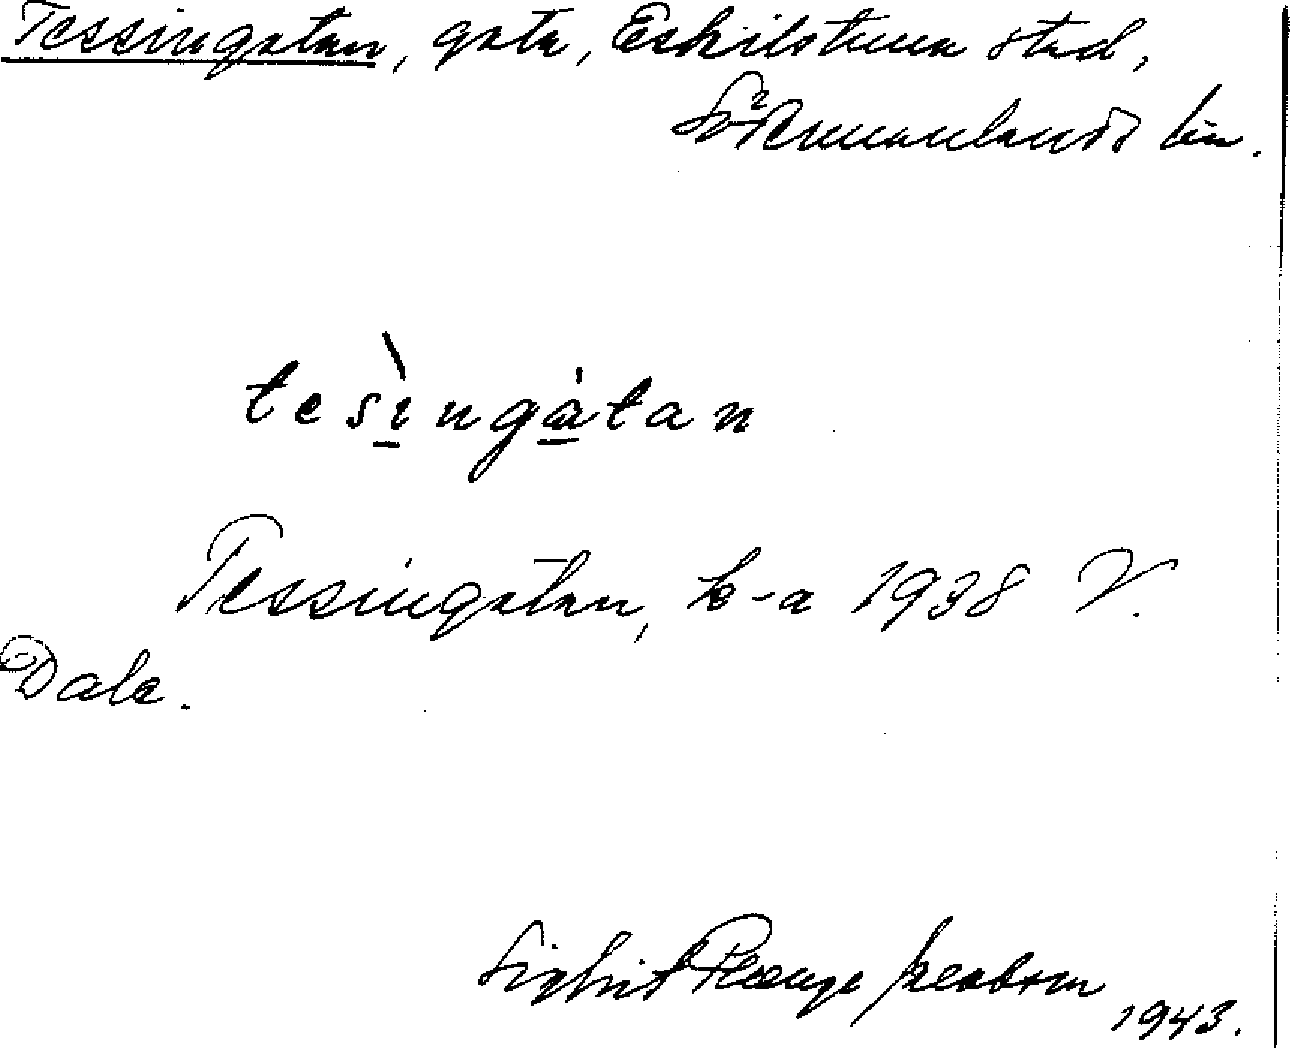 Tessingatan, gata, Eskilstuna stad,
Södermanlands län.
tesìngàtan
Tessingatan, k-a 1938 V.
Dale.
Sigbrit Plænge Jacobson
1943.